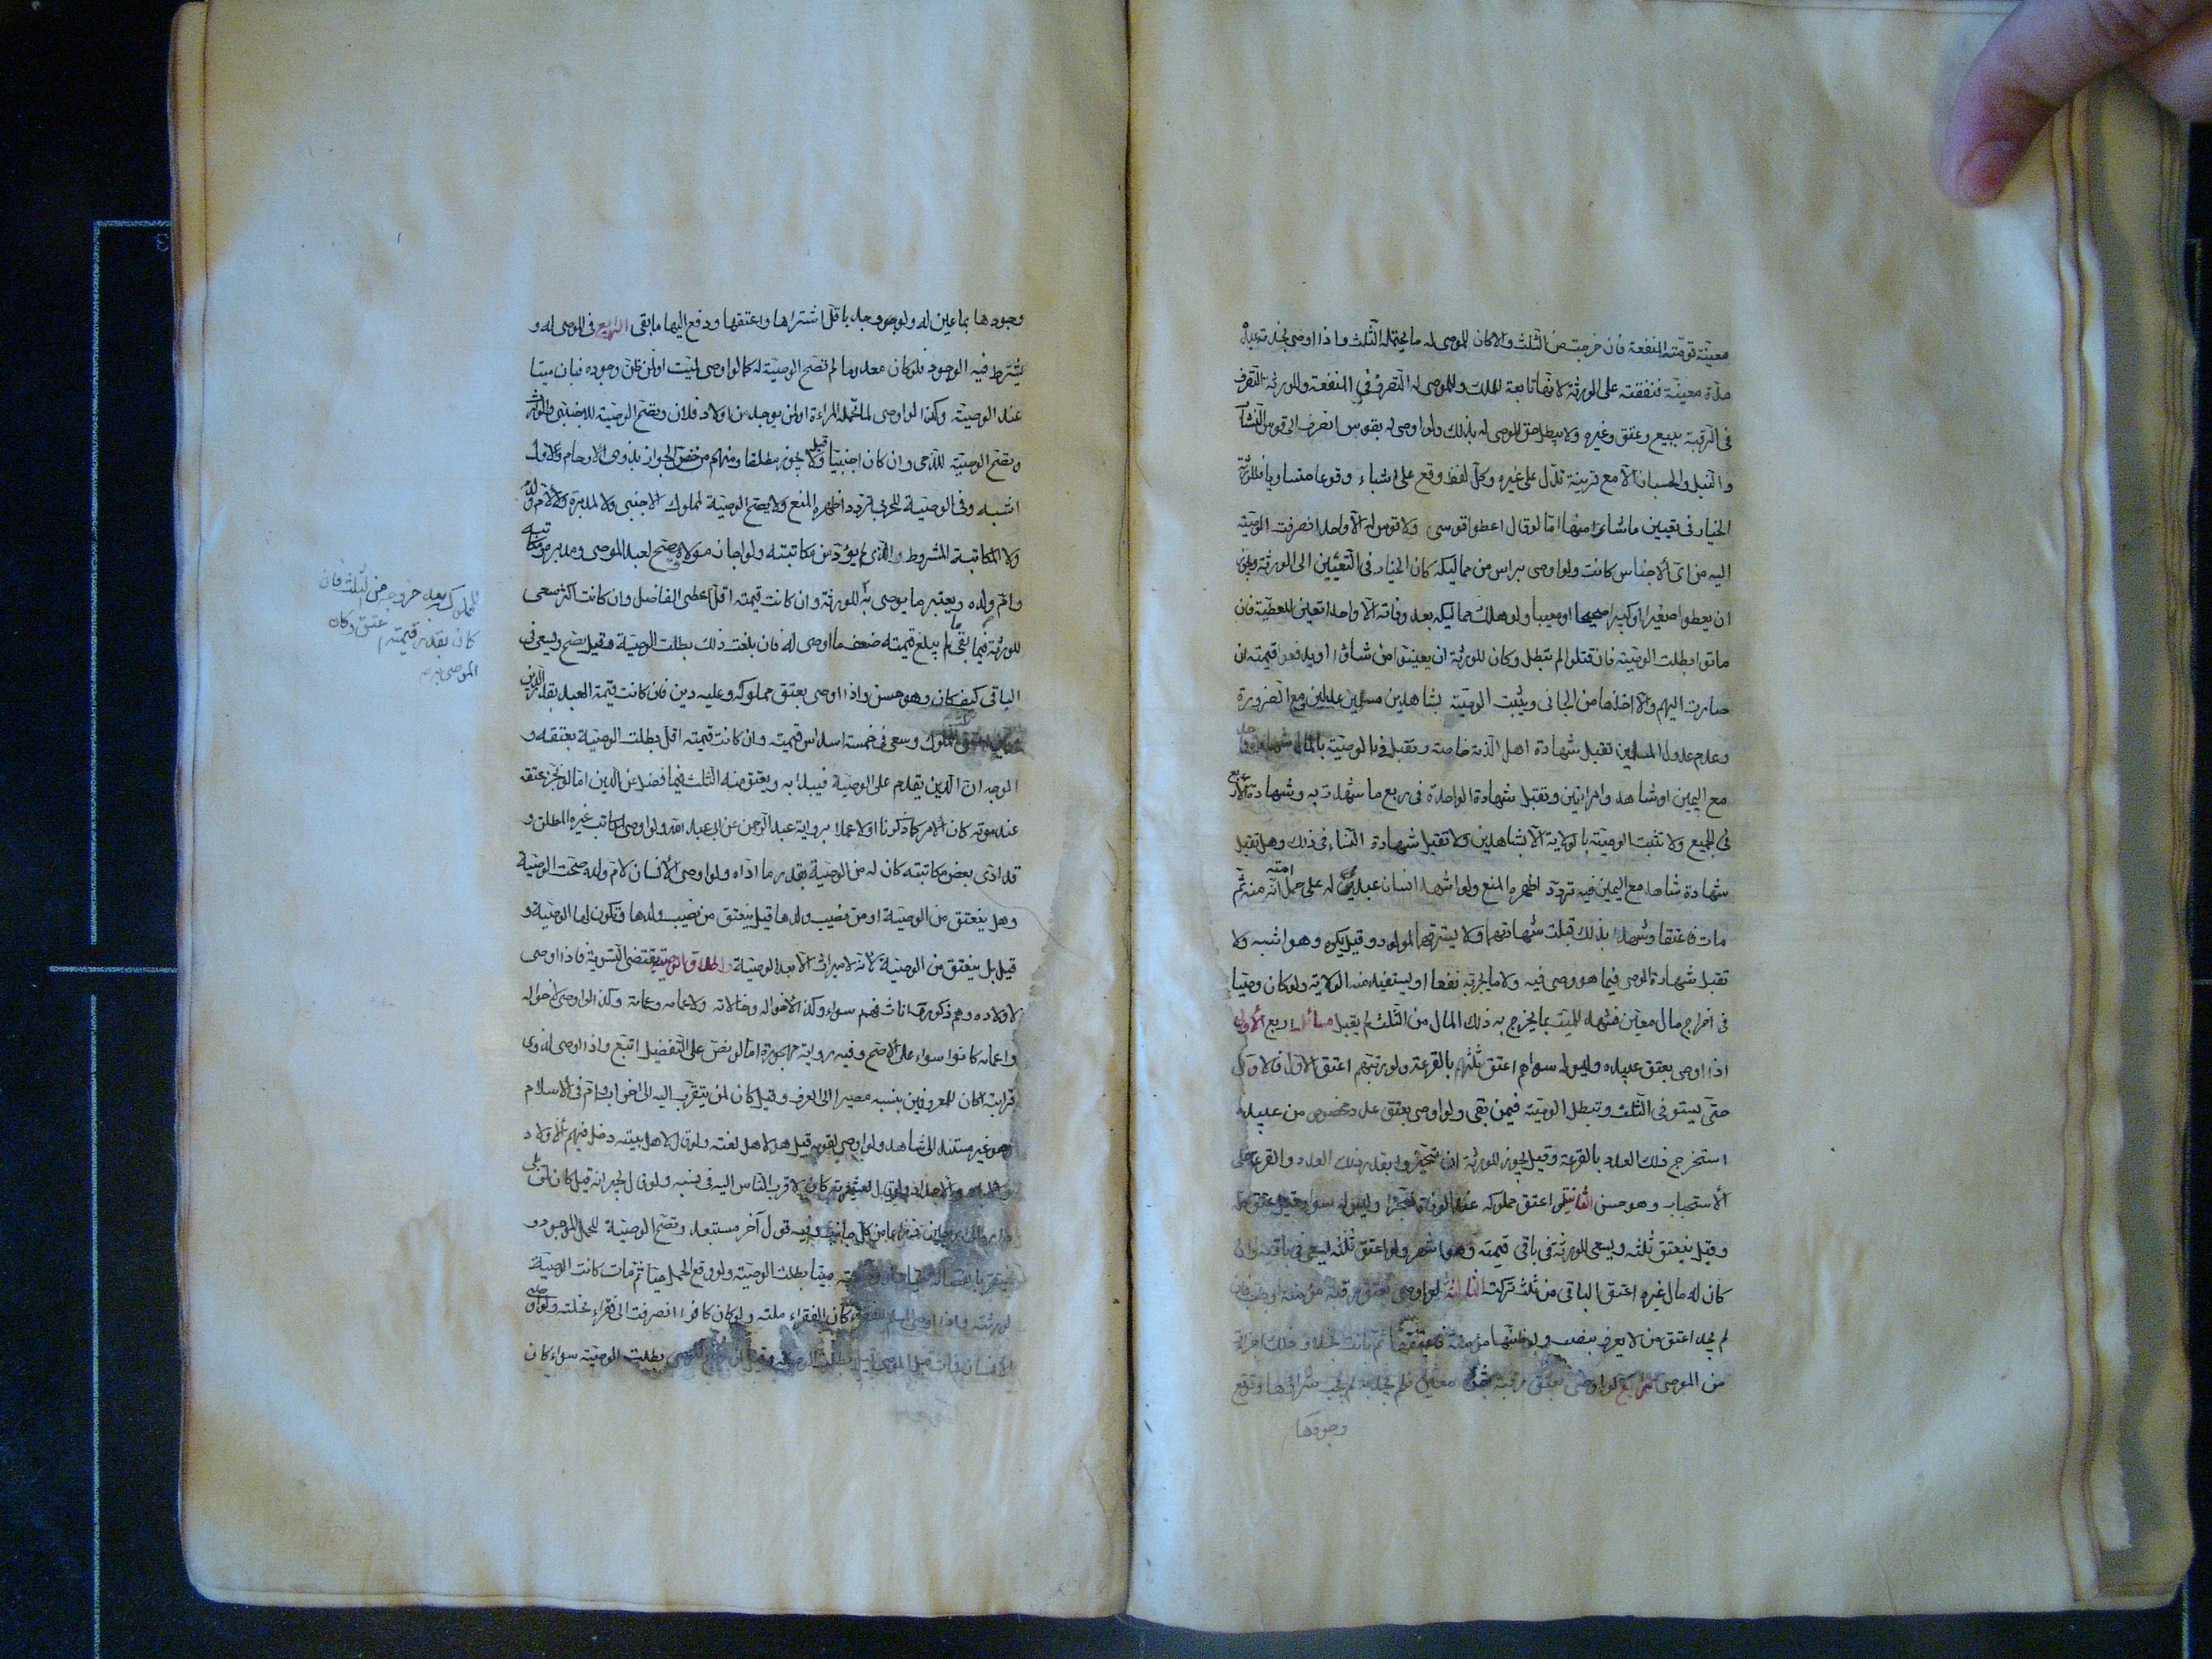 معينة قومت المنفعة فان خرجت من الثلث والا كان للموصى له ما يحتمله الثلث واذا اوصى بخدمة عبده
مدة معينة فنفقته على الورثة لانها تابعة للملك وللموصى له التصرف في المنفعة وللورثة التصرف
في الرقبة ببيع وعتق وغيره ولا يبطل حق الموصى له بذلك ولو اوصى له بقوس انصرف الى قوس النشاب
والنبل والحسبان الا مع قرينة تدل على غيره وكل لفظ وقع على اشياء وقوعا متساويا فللورثة
الخيار في تعيين ما شاءوا منها اما لو قال اعطوا قوسي ولا قوس له الا واحد انصرفت الوصية
اليه من اي الاجناس كانت ولو اوصى براس من مماليكه كان الخيار في التعيين الى الورثة ويجوز
ان يعطوا صغيرا او كبيرا صحيحا او معيبا ولو هلك مماليكه بعد وفاته الا واحدا تعين للعطية فان
ماتوا بطلت الوصية فان قتلوا لم تبطل وكان للورثة ان يعينوا من شاؤا او يدفعوا قيمته ان
صارت اليهم والا اخذها من الجاني ويثبت الوصية بشاهدين مسلمين عدلين ومع الضرورة
وعدم عدول المسلمين تقبل شهادة اهل الذمة خاصة وتقبل في الوصية بالمال شهادة واحد
مع اليمين او شاهد وامراتين وتقبل شهادة الواحدة في ربع ما شهدت به وشهادة الاربع
في الجميع ولا تثبت الوصية بالولاية الا بشاهدين ولا تقبل شهادة النساء في ذلك وهل تقبل
شهادة شاهد مع اليمين فيه تردد اظهره المنع ولو اشهد انسان عبدين له على حمل امته انه منه ثم
مات فاعتقا وشهدا بذلك قبلت شهادتهما ولا يسترقهما المولود وقيل يكره وهو اشبه ولا
تقبل شهادة الموصى فيما هو وصى فيه ولا ما يجر به نفعا او يستفيد منه الولاية ولو كان وصيا
في اخراج مال معين فشهد للميت بما يخرج به ذلك المال من الثلث لم يقبل مسائل اربع الاولى
اذا اوصى بعتق عبيده وليس له سواهم اعتق ثلثهم بالقرعة ولو رتبهم اعتق الاول فالاول
حتى يستوفي الثلث وتبطل الوصية فيمن بقى ولو اوصى بعتق عدد مخصوص من عبيده
استخرج ذلك العدد بالقرعة وقيل يجوز للورثة ان يتخيروا بقدر ذلك العدد والقرعة على
الاستحباب وهو حسن الثانية لو اعتق مملوكه عند الوفاة منجزا وليس له سواه قيل عتق كله
وقيل ينعتق ثلثه ويسعى للورثة في باقي قيمته وهو اشهر ولو اعتق ثلثه يسعى في باقيه ولو
كان له مال غيره اعتق الباقي من ثلث تركته الثالثة لو اوصى بعتق رقبة مؤمنة وجب فان
لم يجد اعتق من لا يعرف بنصب ولو ظنها مؤمنة فاعتقها ثم بانت بخلاف ذلك اجزات
من الموصى الرابعة لو اوصى بعتق رقبة بثمن معين فلم يجد به لم يجب شراؤها وتوقع
وجودها
وجودها بما عين له ولو وجد باقل اشتراها واعتقها ودفع اليها ما بقى الرابع في الموصى له و
يشترط فيه الوجود فلو كان معدوما لم تصح الوصية له كما لو اوصى لميت او لمن ظن وجوده فبان ميتا
عند الوصية وكذا لو اوصى لما تحمله المراءة او لمن يوجد من اولاد فلان وتصح الوصية للاجنبي والوارث
وتصح الوصية للذمي وان كان اجنبيا وقيل لا يجوز مطلقا ومنهم من خص الجواز بذوى الارحام والاول
اشبه وفي الوصية للحربي تردد اظهره المنع ولا يصح الوصية لمملوك الاجنبي ولا لمدبره ولا لام ولده
ولا لمكاتبه المشروط والذي لم يؤد من مكاتبته ولو اجاز مولاه وتصح لعبد الموصى ومدبره ومكاتبه
وام ولده ويعتبر ما يوصى به للورثة وان كانت قيمته اقل اعطى الفاضل وان كانت اكثر سعى
للورثة فيما بقى ما لم يبلغ قيمته ضعف ما اوصى له فان بلغت ذلك بطلت الوصية وقيل يصح ويسعى في
الباقي كيف كان وهو حسن واذا اوصى بعتق مملوكه وعليه دين فان كانت قيمة العبد بقدر الدين
المملوك وسعى في خمسة اسداس قيمته وان كانت قيمته اقل بطلت الوصية بعتقه و
الوجه ان الدين يقدم على الوصية فيبدا به ويعتق منه الثلث فيما فضل عن الدين اما لو نجز عتقه
عند موته كان الامر كما ذكرنا اولا عملا برواية عبد الرحمن عن ابي عبد الله ولو اوصى لمكاتب غيره المطلق و
قد ادى بعض مكاتبته كان له من الوصية بقدر ما اداه ولو اوصى الانسان لام ولده صحت الوصية
وهل ينعتق من الوصية او من نصيب ولدها قيل ينعتق من نصيب ولدها وتكون لها الوصية و
قيل بل ينعتق من الوصية لانه لا ميراث الا بعد الوصية واطلاق الوصية يقتضي التسوية فاذا اوصى
لاولاده وهم ذكور واناث فهم سواء وكذا لاخواله وخالاته ولاعمامه وعماته وكذا لو اوصى لاخواله
واعمامه كانوا سواء على الاصح وفيه رواية مهجورة اما لو نص على التفضيل اتبع واذا اوصى لذوي
قرابته كان للمعروفين بنسبه مصيرا الى العرف وقيل كان لمن يتقرب اليه الى اخر اب وام في الاسلام
وهو غير مستند الى شاهد ولو اوصى لقومه قيل هو لاهل لغته ولو قال لاهل بيته دخل فيهم الاولاد
والاباء والاجداد ولو قال لعشيرته كان لاقرب الناس اليه في نسبه ولو قال لجيرانه قيل كان لمن يلى
داره الى اربعين ذراعا من كل جانب وفيه قول آخر مستبعد وتصح الوصية للحمل الموجود و
ميتا بطلت الوصية ولو وقع الحمل حيا ثم مات كانت الوصية
لورثته واذا اوصى المسلم للفقراء كان لفقراء ملته ولو كان كافرا انصرفت الى فقراء نحلته ولو اوصى
لانسان فمات قبل الموصى قيل بطلت الوصية بطلت الوصية سواء كان
المملوك بعد خروجه من الثلث فان
كان بقدر قيمته عتق وكان
الموصى به